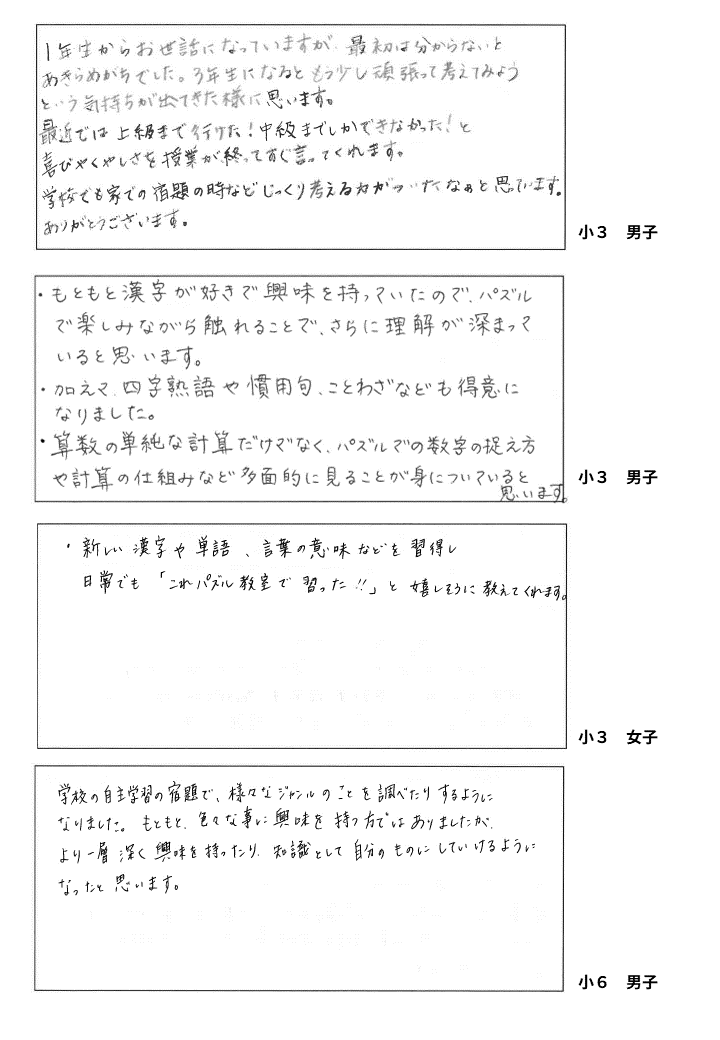 1年生からお世話になっていますが、最初は分からないと
あきらめがちでした。3年生になるともう少し頑張って考えてみよう
という気持ちが出てきた様に思います。
最近では上級まで行けた！中級までしかできなかった！と
喜びやくやしさを授業が終ってすぐ言ってくれます。
学校でも家での宿題の時などじっくり考える力がついたなぁと思っています。
ありがとうございます。
小３　男子
・もともと漢字が好きで興味を持っていたので、パズル
で楽しみながら触れることで、さらに理解が深まって
いると思います。
・加えて、四字熟語や慣用句、ことわざなども得意に
なりました。
・算数の単純な計算だけでなく、パズルでの数字の捉え方
や計算の仕組みなど多面的に見ることが身についていると
思います。
小３　男子
・新しい漢字や単語、言葉の意味などを習得し
日常でも「これパズル教室で習った!!」と嬉しそうに教えてくれます。
小３　女子
学校の自主学習の宿題で、様々なジャンルのことを調べたりするように
なりました。もともと、色々な事に興味を持つ方ではありましたが、
より一層深く興味を持ったり、知識として自分のものにしていけるように
なったと思います。
小６　男子